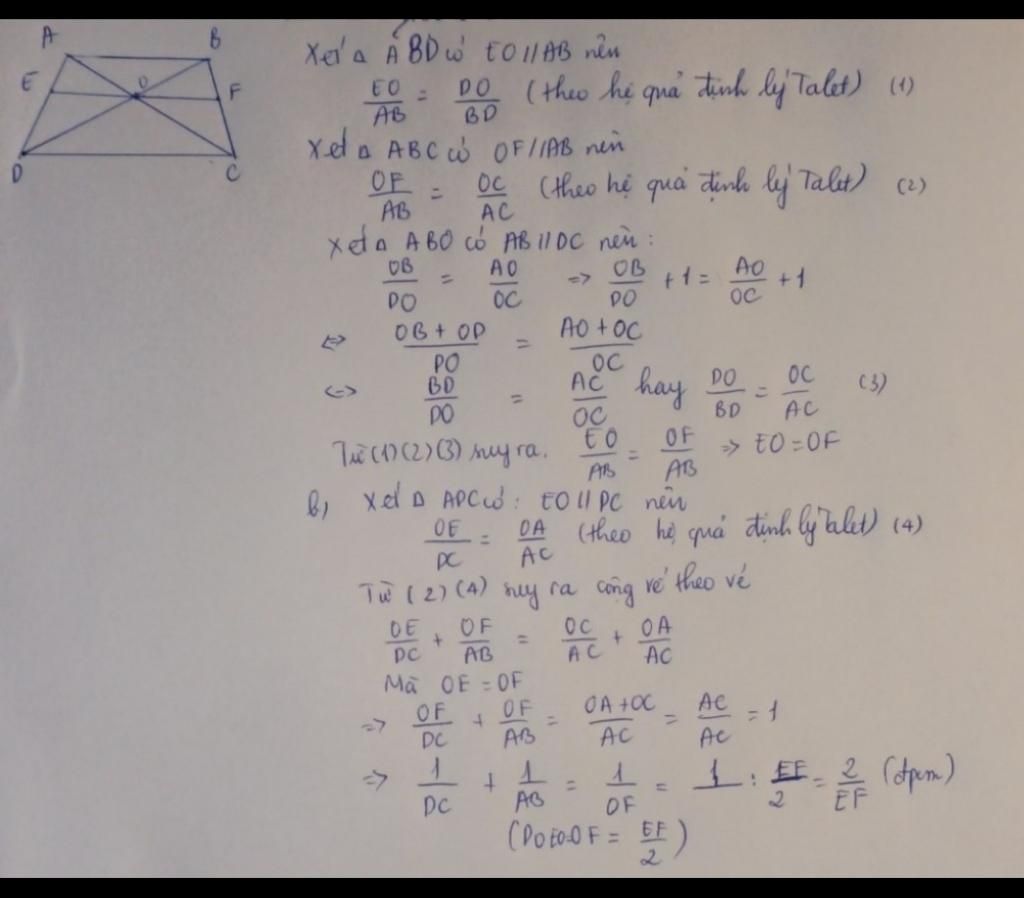 A B
E O F
D C
Xét △ ABD có EO // AB nên
EO/AB = DO/BD (theo hệ quả định lý Talet) (1)
Xét △ ABC có OF // AB nên
OF/AB = OC/AC (theo hệ quả định lý Talet) (2)
Xét △ ABO có AB // DC nên :
OB/DO = AO/OC => OB/DO + 1 = AO/OC + 1
<=> (OB + OD)/DO = (AO + OC)/OC
<=> BD/DO = AC/OC hay DO/BD = OC/AC (3)
Từ (1) (2) (3) suy ra. EO/AB = OF/AB => EO = OF
b, Xét △ ADC có : EO // DC nên
OE/DC = OA/AC (theo hệ quả định lý Talet) (4)
Từ (2) (4) suy ra cộng vế theo vế
OE/DC + OF/AB = OC/AC + OA/AC
Mà OE = OF
=> OF/DC + OF/AB = (OA + OC)/AC = AC/AC = 1
=> 1/DC + 1/AB = 1/OF = 1 : EF/2 = 2/EF (đpcm)
(Do EO = OF = EF/2)